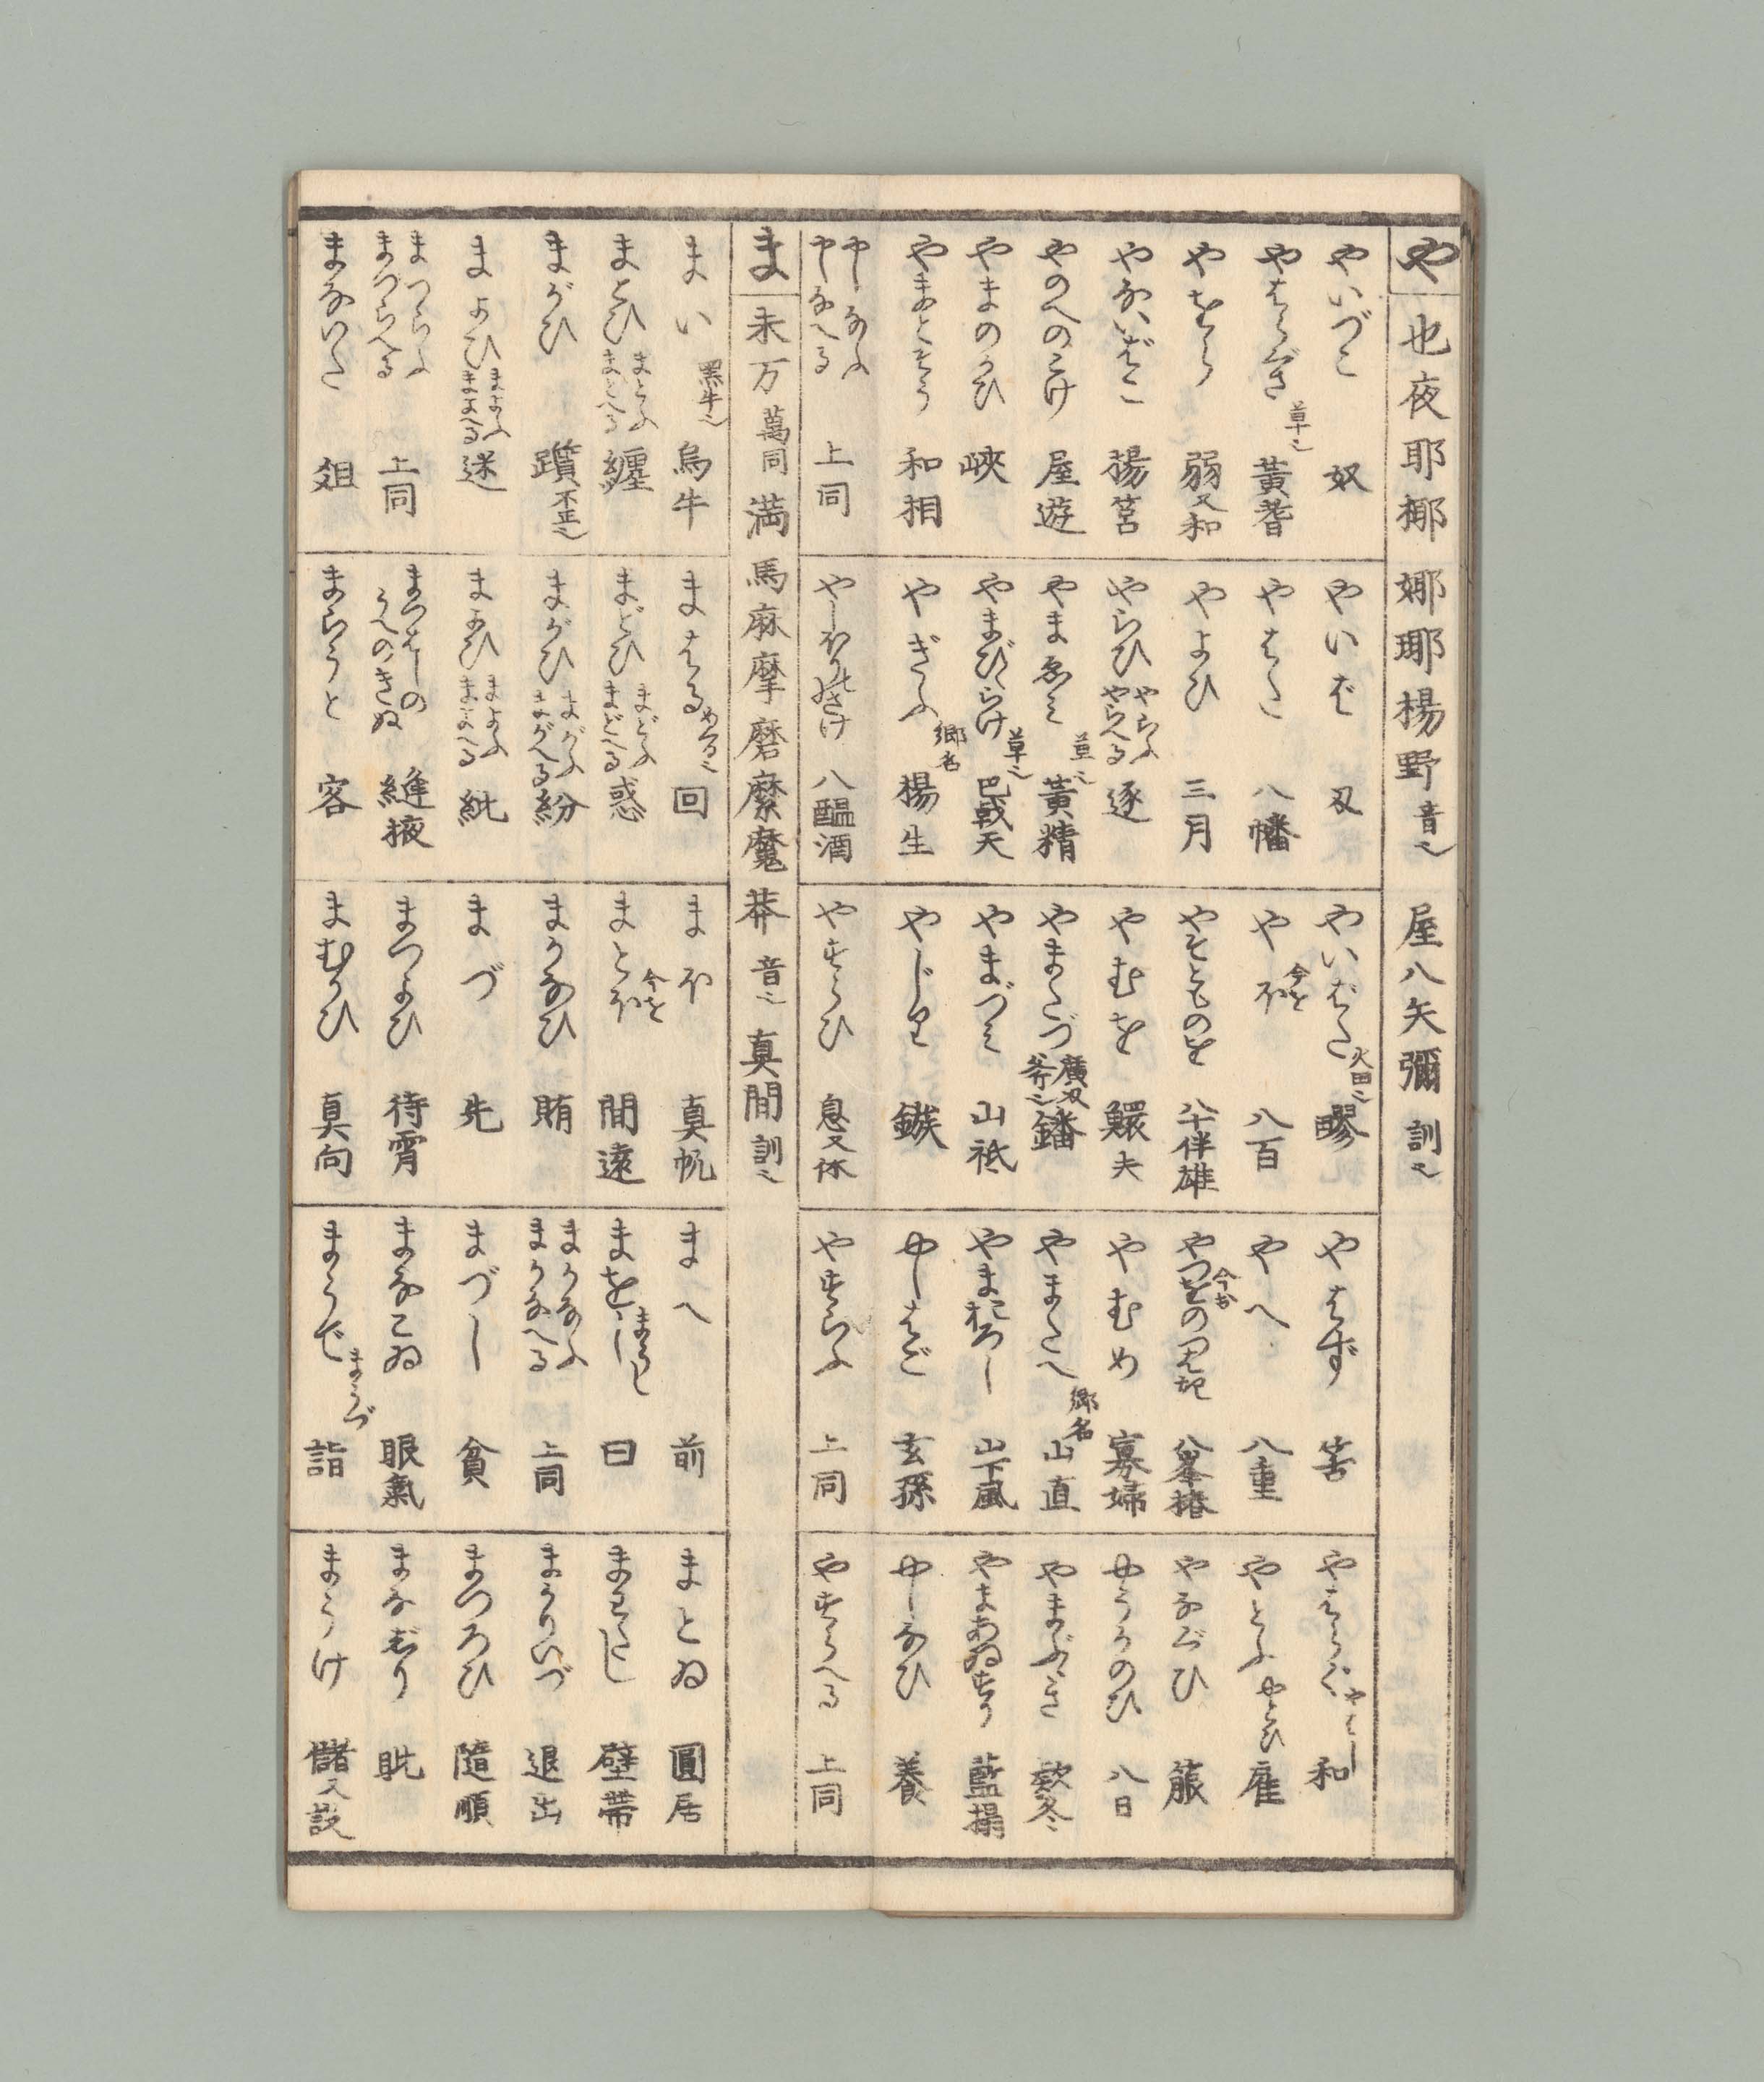 や 也夜耶揶娜瑘楊野音也 屋八矢彌訓也
やいづこ 奴
やはらぐさ 草也 黃耆
やはら 弱又和
やないばこ 楊筥
やのへのこけ 屋遊
やまのかひ 峽
やまとさう 和相
やしなふ やしなへる 上同
やいば 刄
やはた 八幡
やよひ 三月
やらひ やらふ やらへる 逐
やまゑみ 草也 黃精
やまびらけ 草也 巴戟天
やぎふ 郷名 楊生
やしほりのさけ 八醞酒
やいばた 火田也 疁
やほ 今を 八百
やそとものを 八十伴雄
やむを 鰥夫
やまたづ 廣刄斧也 鐇
やまづみ 山祗
やじり 鏃
やすらひ 息又休
やはず 筈
やへ 八重
やつをのつばき 今お 八峯椿
やむめ 寡婦
やまたへ 郷名 山直
やまおろし 山下風
やしはご 玄孫
やすらふ 上同
やはらぐ やはし 和
やとふ やとひ 雇
やなぐひ 箙
やうかのひ 八日
やまぶき 欵冬
やまあゐすり 藍摺
やしなひ 養
やすらへる 上同
ま 末万萬同満馬麻摩磨縻魔莽音也 真間訓也
まい 黒牛也 烏牛
まとひ まとふ まとへる 纏
まがひ 躓不正也
まよひ まよふ まよへる 迷
まつらふ まつらへる 上同
まないた 俎
まはる めぐる也 回
まどひ まどふ まどへる 惑
まがひ まがふ まがへる 紛
まよひ まよふ まよへる 紕
まつはしのうへのきぬ 縫掖
まらうと 客
まほ 真帆
まとほ 今を 間遠
まかなひ 賄
まづ 先
まつよひ 待宵
まむかひ 真向
まへ 前
まをし まうし 曰
まかなふ まかなへる 上同
まづし 貧
まなこゐ 眼氣
まうで まうづ 詣
まとゐ 圓居
まわたし 壁帶
まかりいづ 退出
まつろひ 隨順
まなじり 眦
まうけ 儲又設